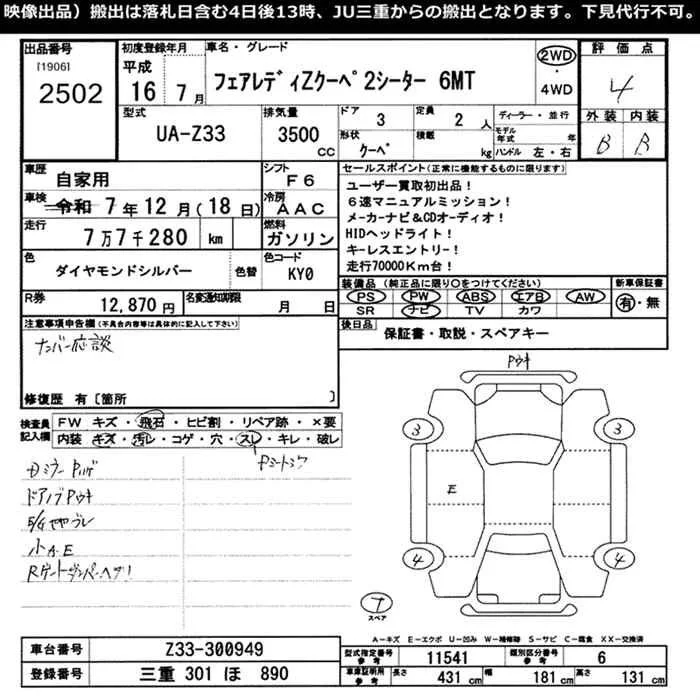 映像出品）搬出は落札日含む4日後13時、JU三重からの搬出となります。下見代行不可。
出品番号
[1906]
2502
初度登録年月
平成
16 7月
車名・グレード
フェアレディZクーペ 2シーター 6MT
2WD
・
4WD
評価点
4
外装 内装
B B
型式
UA-Z33
排気量
3500
CC
ドア 3
定員 2 人
形状 クーペ
積載 kg
ディーラー・並行
モデル年式 年
ハンドル 左・右
車歴
自家用
シフト
F6
車検
令和 7年12月(18日)
冷房
AAC
走行
7万7千280 km
燃料
ガソリン
色
ダイヤモンドシルバー
色替
色コード
KY0
R券
12,870円
名変通知期限
月 日
セールスポイント(正常に機能するものに限ります)
ユーザー買取初出品！
6速マニュアルミッション！
メーカーナビ&CDオーディオ！
HIDヘッドライト！
キーレスエントリー！
走行70000Km台！
装備品(純正品に限り○をつけてください)
PS PW ABS エアB AW
SR ナビ TV カワ
新車保証書
有・無
後日品
保証書・取説・スペアキー
注意事項申告欄(不具合内容等は具体的に記入して下さい)
ナンバー応談
修復歴 有〔箇所 〕
検査員記入欄
FW キズ・飛石・ヒビ割・リペア跡・×要
内装 キズ・汚レ・コゲ・穴・スレ・キレ・破レ
ドアノブPウキ
小A.E
Pウキ
3 3
E
4 4
7
スペア
A－キズ E－エクボ U－凹み W－補修跡 S－サビ C－腐食 XX－交換済
車台番号
Z33-300949
登録番号
三重 301 ほ 890
型式指定番号 参考
11541
類別区分番号 参考
6
車庫証明用 参考
長さ 431 cm
幅 181 cm
高さ 131 cm